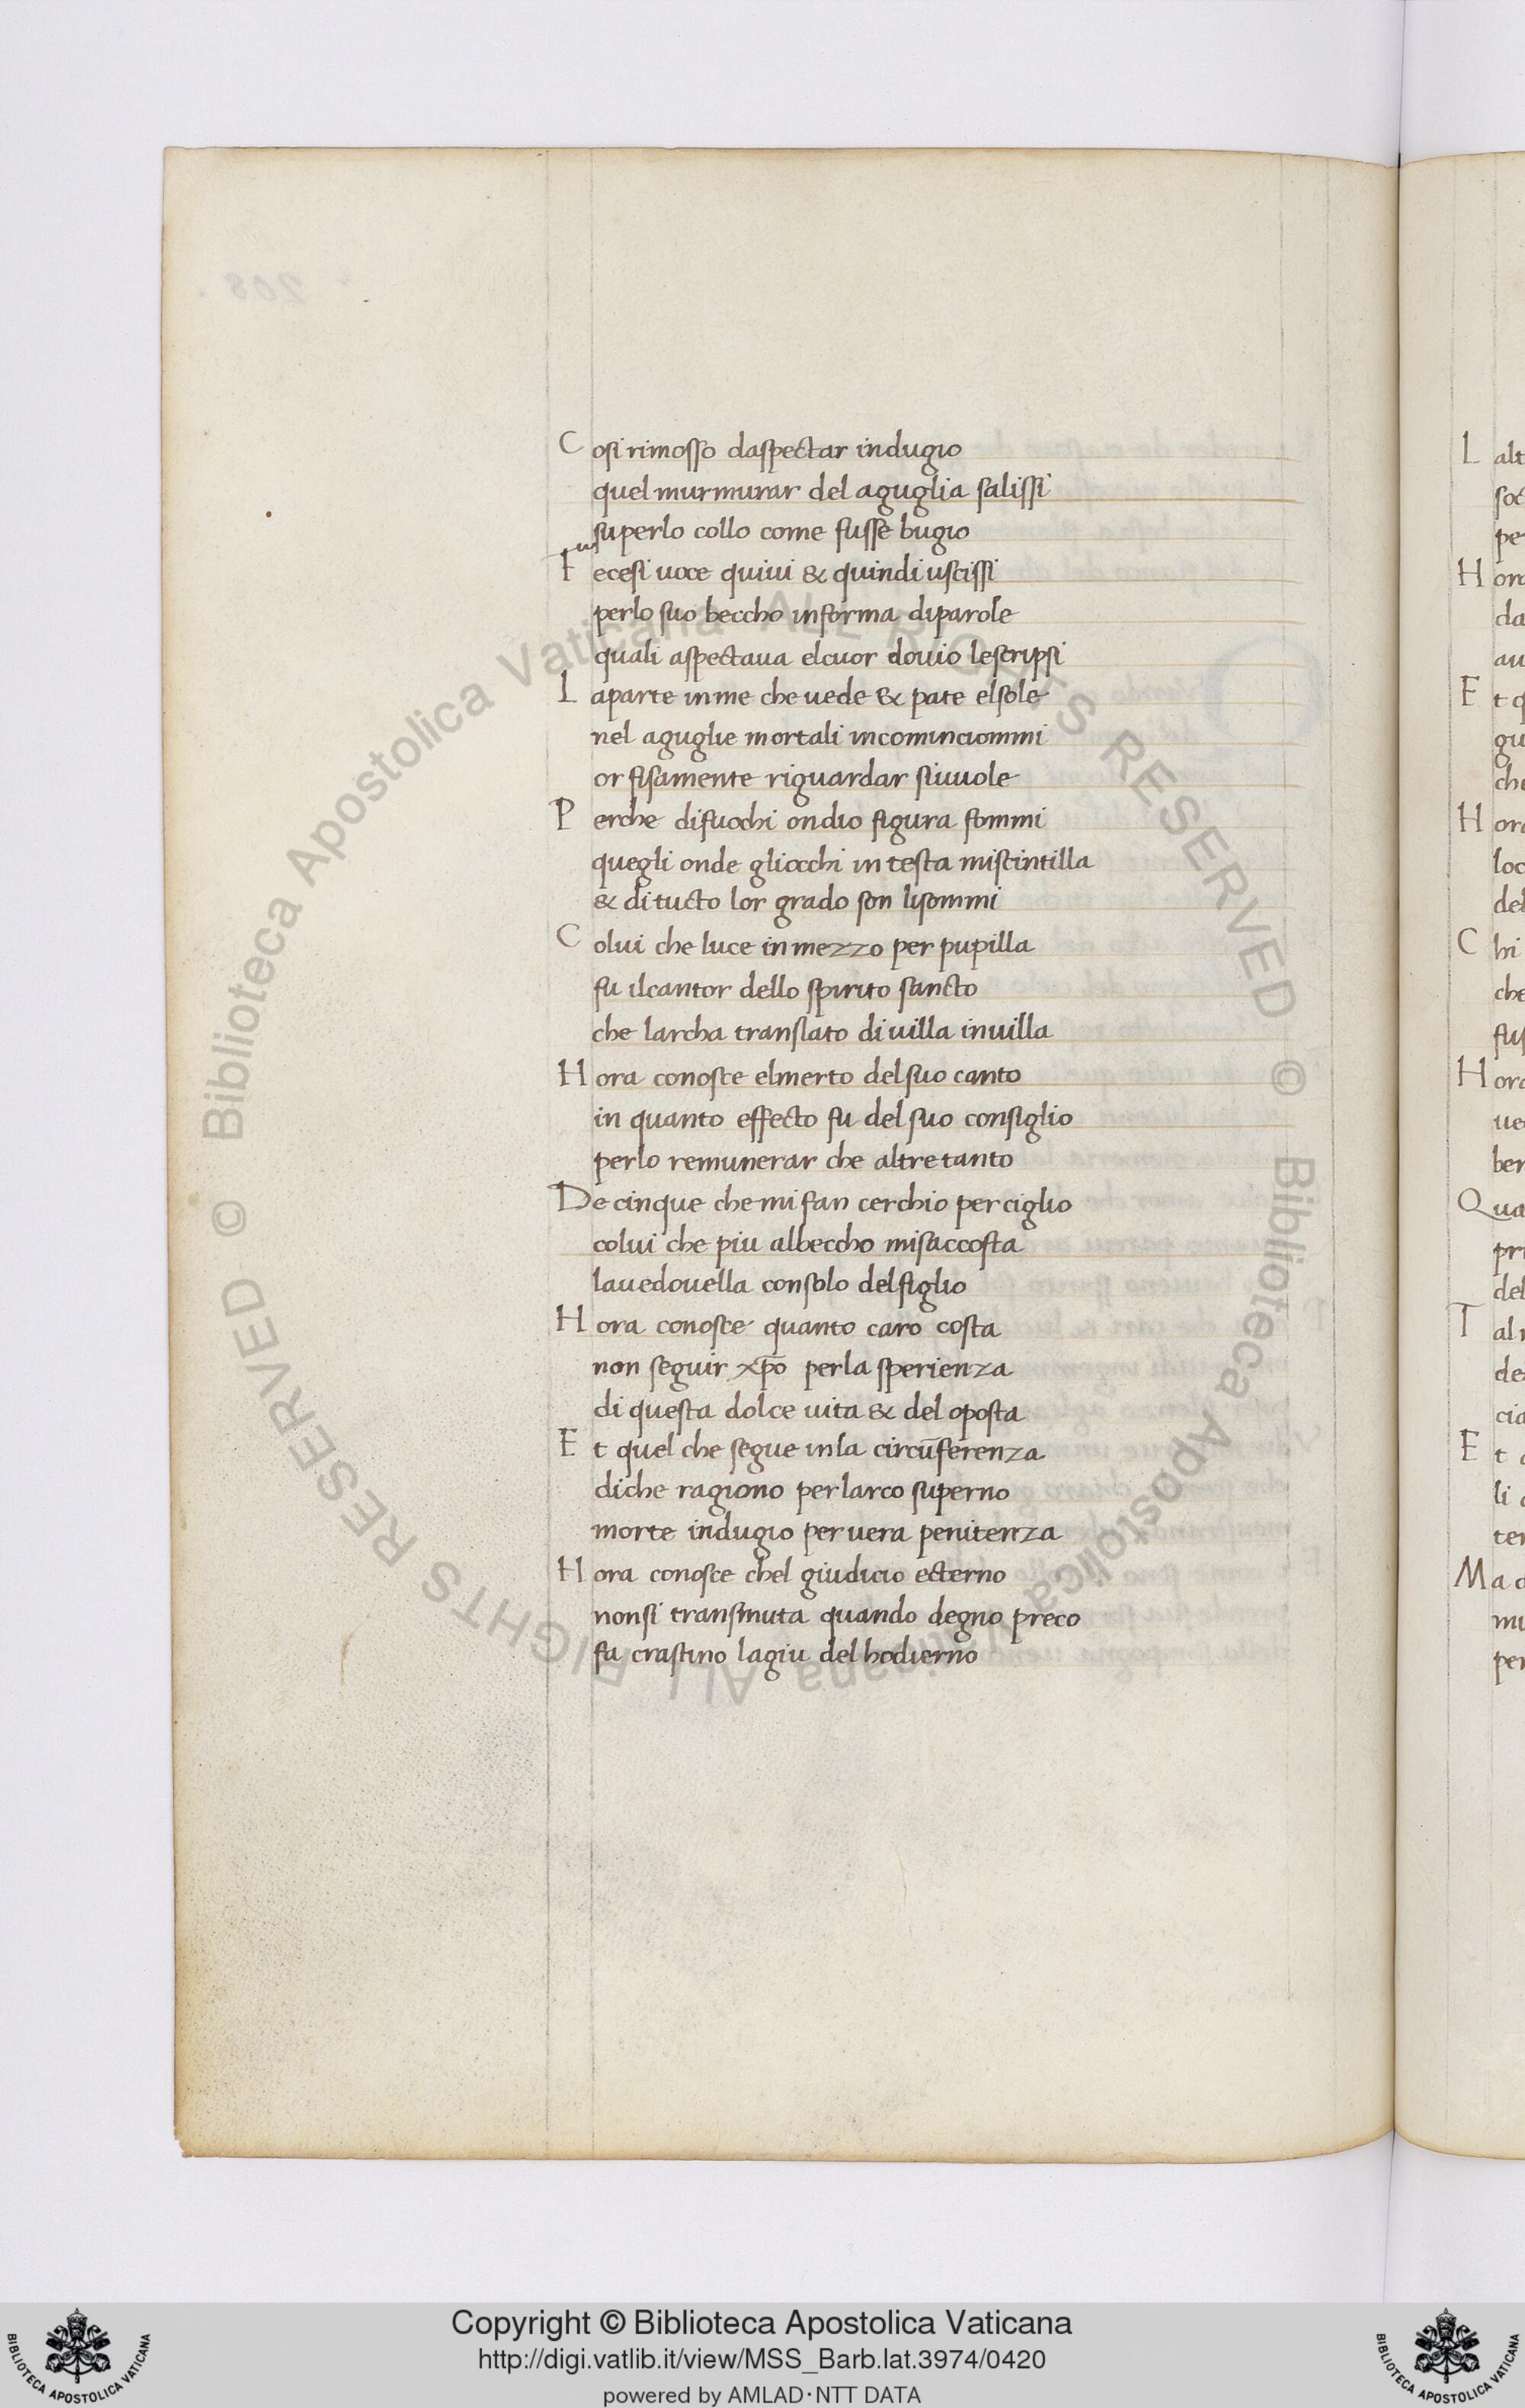 Cosi rimosso daspectar indugio
quel murmurar del aguglia salissi
superlo collo come fusse bugio
Fecesi uoce quiui & quindi uscissi
perlo suo beccho informa diparole
quali aspectaua elcuor douio lescripsi
Laparte inme che uede & pate elsole
nel aguglie mortali incominciommi
or fisamente riguardar siuuole
Perche difuochi ondio figura fommi
quegli onde gliocchi in testa miscintilla
& di tucto lor grado son lisommi
Colui che luce in mezzo per pupilla
fu ilcantor dello spirito sancto
che larcha translato di uilla inuilla
Hora conosce elmerto delsuo canto
in quanto effecto fu del suo consiglio
perlo remunerar che altretanto
De cinque che mi fan cerchio per ciglio
colui che piu albeccho misaccosta
lauedouella consolo delfiglio
Hora conosce quanto caro costa
non seguir xp̄o perla sperienza
di questa dolce uita & del oposta
Et quel che segue inla circūferenza
diche ragiono perlarco superno
morte indugio per uera penitenza
Hora conosce chel giudicio ecterno
nonsi transmuta quando degno preco
fa crastino lagiu delhodierno
L alt
soc
pe
H ora
da
au
E t q
gu
che
H ora
loc
del
C hi
che
fus
H ora
ue
ben
Qua
pri
del
T al
de
cia
E t
li
ter
Ma
mi
per
208
© Biblioteca Apostolica Vaticana ALL RIGHTS RESERVED © Biblioteca Apostolica Vaticana ALL RIGHTS RESERVED
Copyright © Biblioteca Apostolica Vaticana
http://digi.vatlib.it/view/MSS_Barb.lat.3974/0420
powered by AMLAD·NTT DATA
BIBLIOTECA APOSTOLICA VATICANA
BIBLIOTECA APOSTOLICA VATICANA